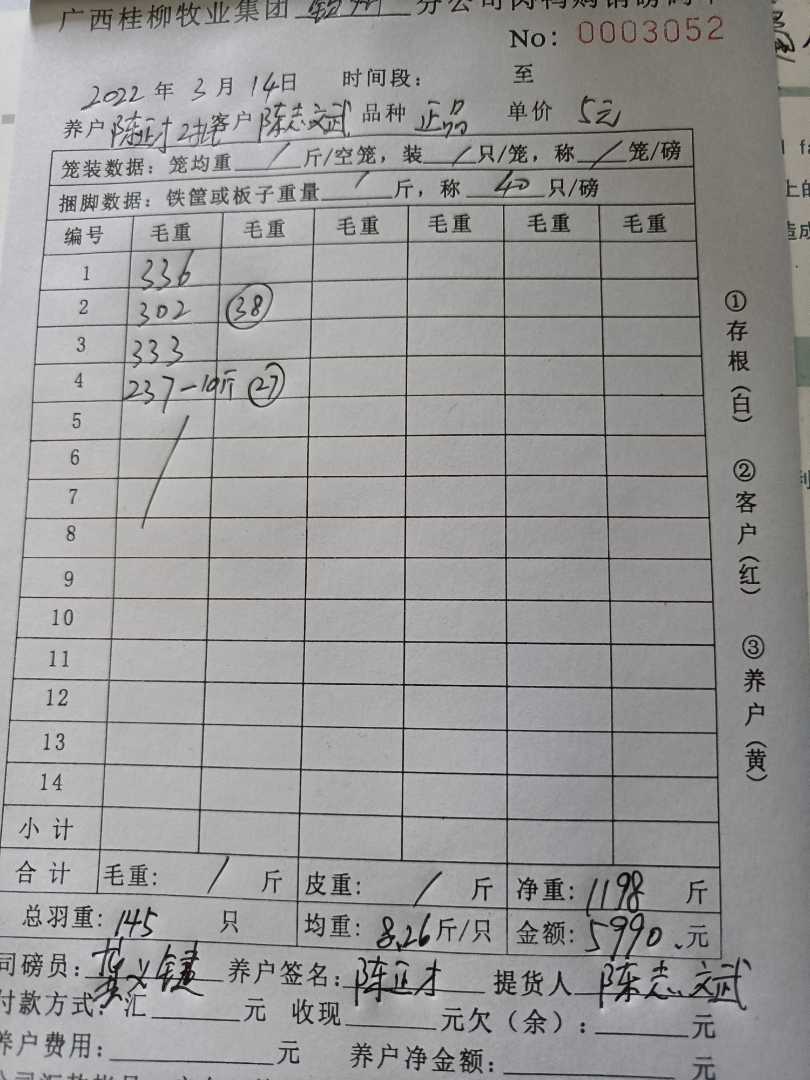 广西桂柳牧业集团 钦州 分公司肉鸭购销磅码单
No: 0003052
2022 年 3 月 14日 时间段: 至
养户 陈正才2批 客户 陈志斌 品种 正品 单价 5元
笼装数据: 笼均重 / 斤/空笼, 装 / 只/笼, 称 / 笼/磅
捆脚数据: 铁筐或板子重量 / 斤, 称 40 只/磅
编号 毛重 毛重 毛重 毛重 毛重 毛重
1 336
2 302 38
3 333
4 237-10斤 27
5
6
7
8
9
10
11
12
13
14
小计
合计 毛重: / 斤 皮重: / 斤 净重: 1198 斤
总羽重: 145 只 均重: 8.26 斤/只 金额: 5990. 元
司磅员: 义键 养户签名: 陈正才 提货人 陈志斌
付款方式: 汇 元 收现 元欠(余): 元
养户费用: 元 养户净金额: 元
①存根(白) ②客户(红) ③养户(黄)